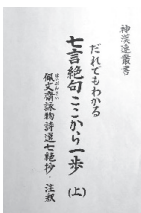 神漢連叢書
だれでもわかる
七言絶句ここから一歩
(上)
佩文齋詠物詩選七絶抄・注釈